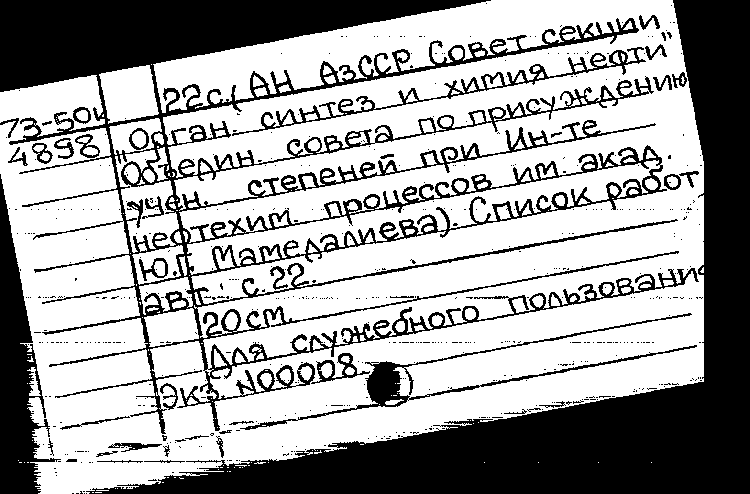 22с. (АН АзССР. Совет секции
73-50к
4898 „Орган. синтез и химия нефти"
Объедин. совета по присуждению
учен. степеней при Ин-те
нефтехим. процессов им. акад.
Ю.Г. Мамедалиева). Список работ
авт.: с. 22.
20 см.
Для служебного пользования
Экз. N00008